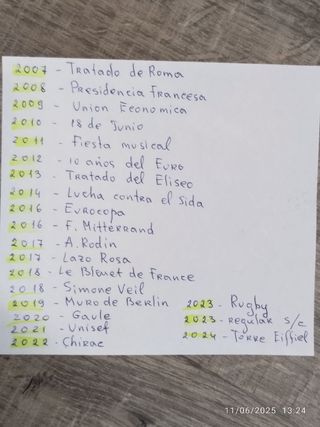 2007 - Tratado de Roma
2008 - Presidencia Francesa
2009 - Union Economica
2010 - 18 de Junio
2011 - Fiesta musical
2012 - 10 años del Euro
2013 - Tratado del Eliseo
2014 - Lucha contra el Sida
2016 - Eurocopa
2016 - F. Mitterrand
2017 - A. Rodin
2017 - Lazo Rosa
2018 - Le Bleuet de France
2018 - Simone Veil
2019 - Muro de Berlin
2020 - Gaule
2021 - Unisef
2022 - Chirac
2023 - Rugby
2023 - regular s/c
2024 - Torre Eiffiel
11/06/2025 13:24